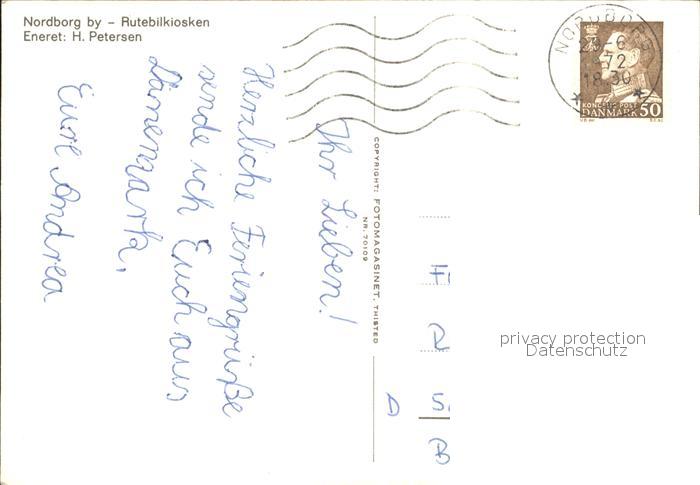 Nordborg by – Rutebilkiosken
Eneret: H. Petersen
NORDBORG
-6
72
18-30
KONGELIG POST
DANMARK 50
COPYRIGHT: FOTOMAGASINET, THISTED
NR. 70109
Ihr Lieben!
Herzliche Feriengrüße
sende ich Euch aus
Dänemark,
Eure Andrea
D
privacy protection
Datenschutz